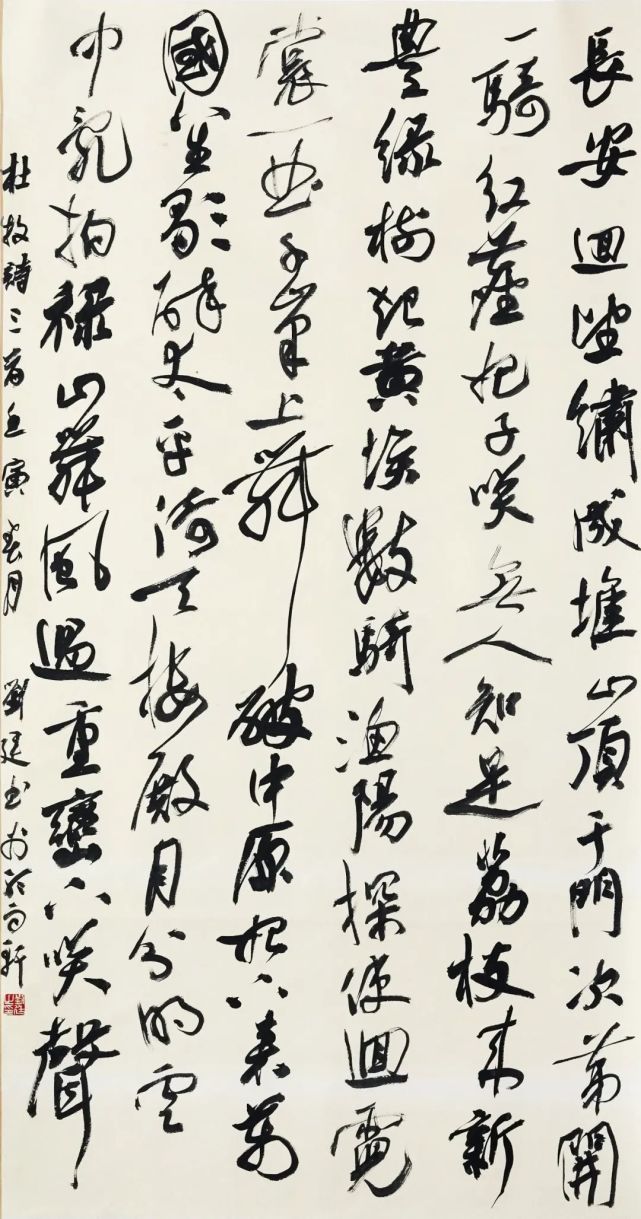 長安迴望繡成堆山頂千門次第開
一騎紅塵妃子咲無人知是荔枝来新
豐緑樹起黄埃數騎漁陽探使迴霓
裳一曲千峯上舞破中原始下来萬
國笙歌醉太平倚天樓殿月分明雲
中亂拍禄山舞風過重巒下咲聲
杜牧詩三首壬寅春月
劉廷書於軒